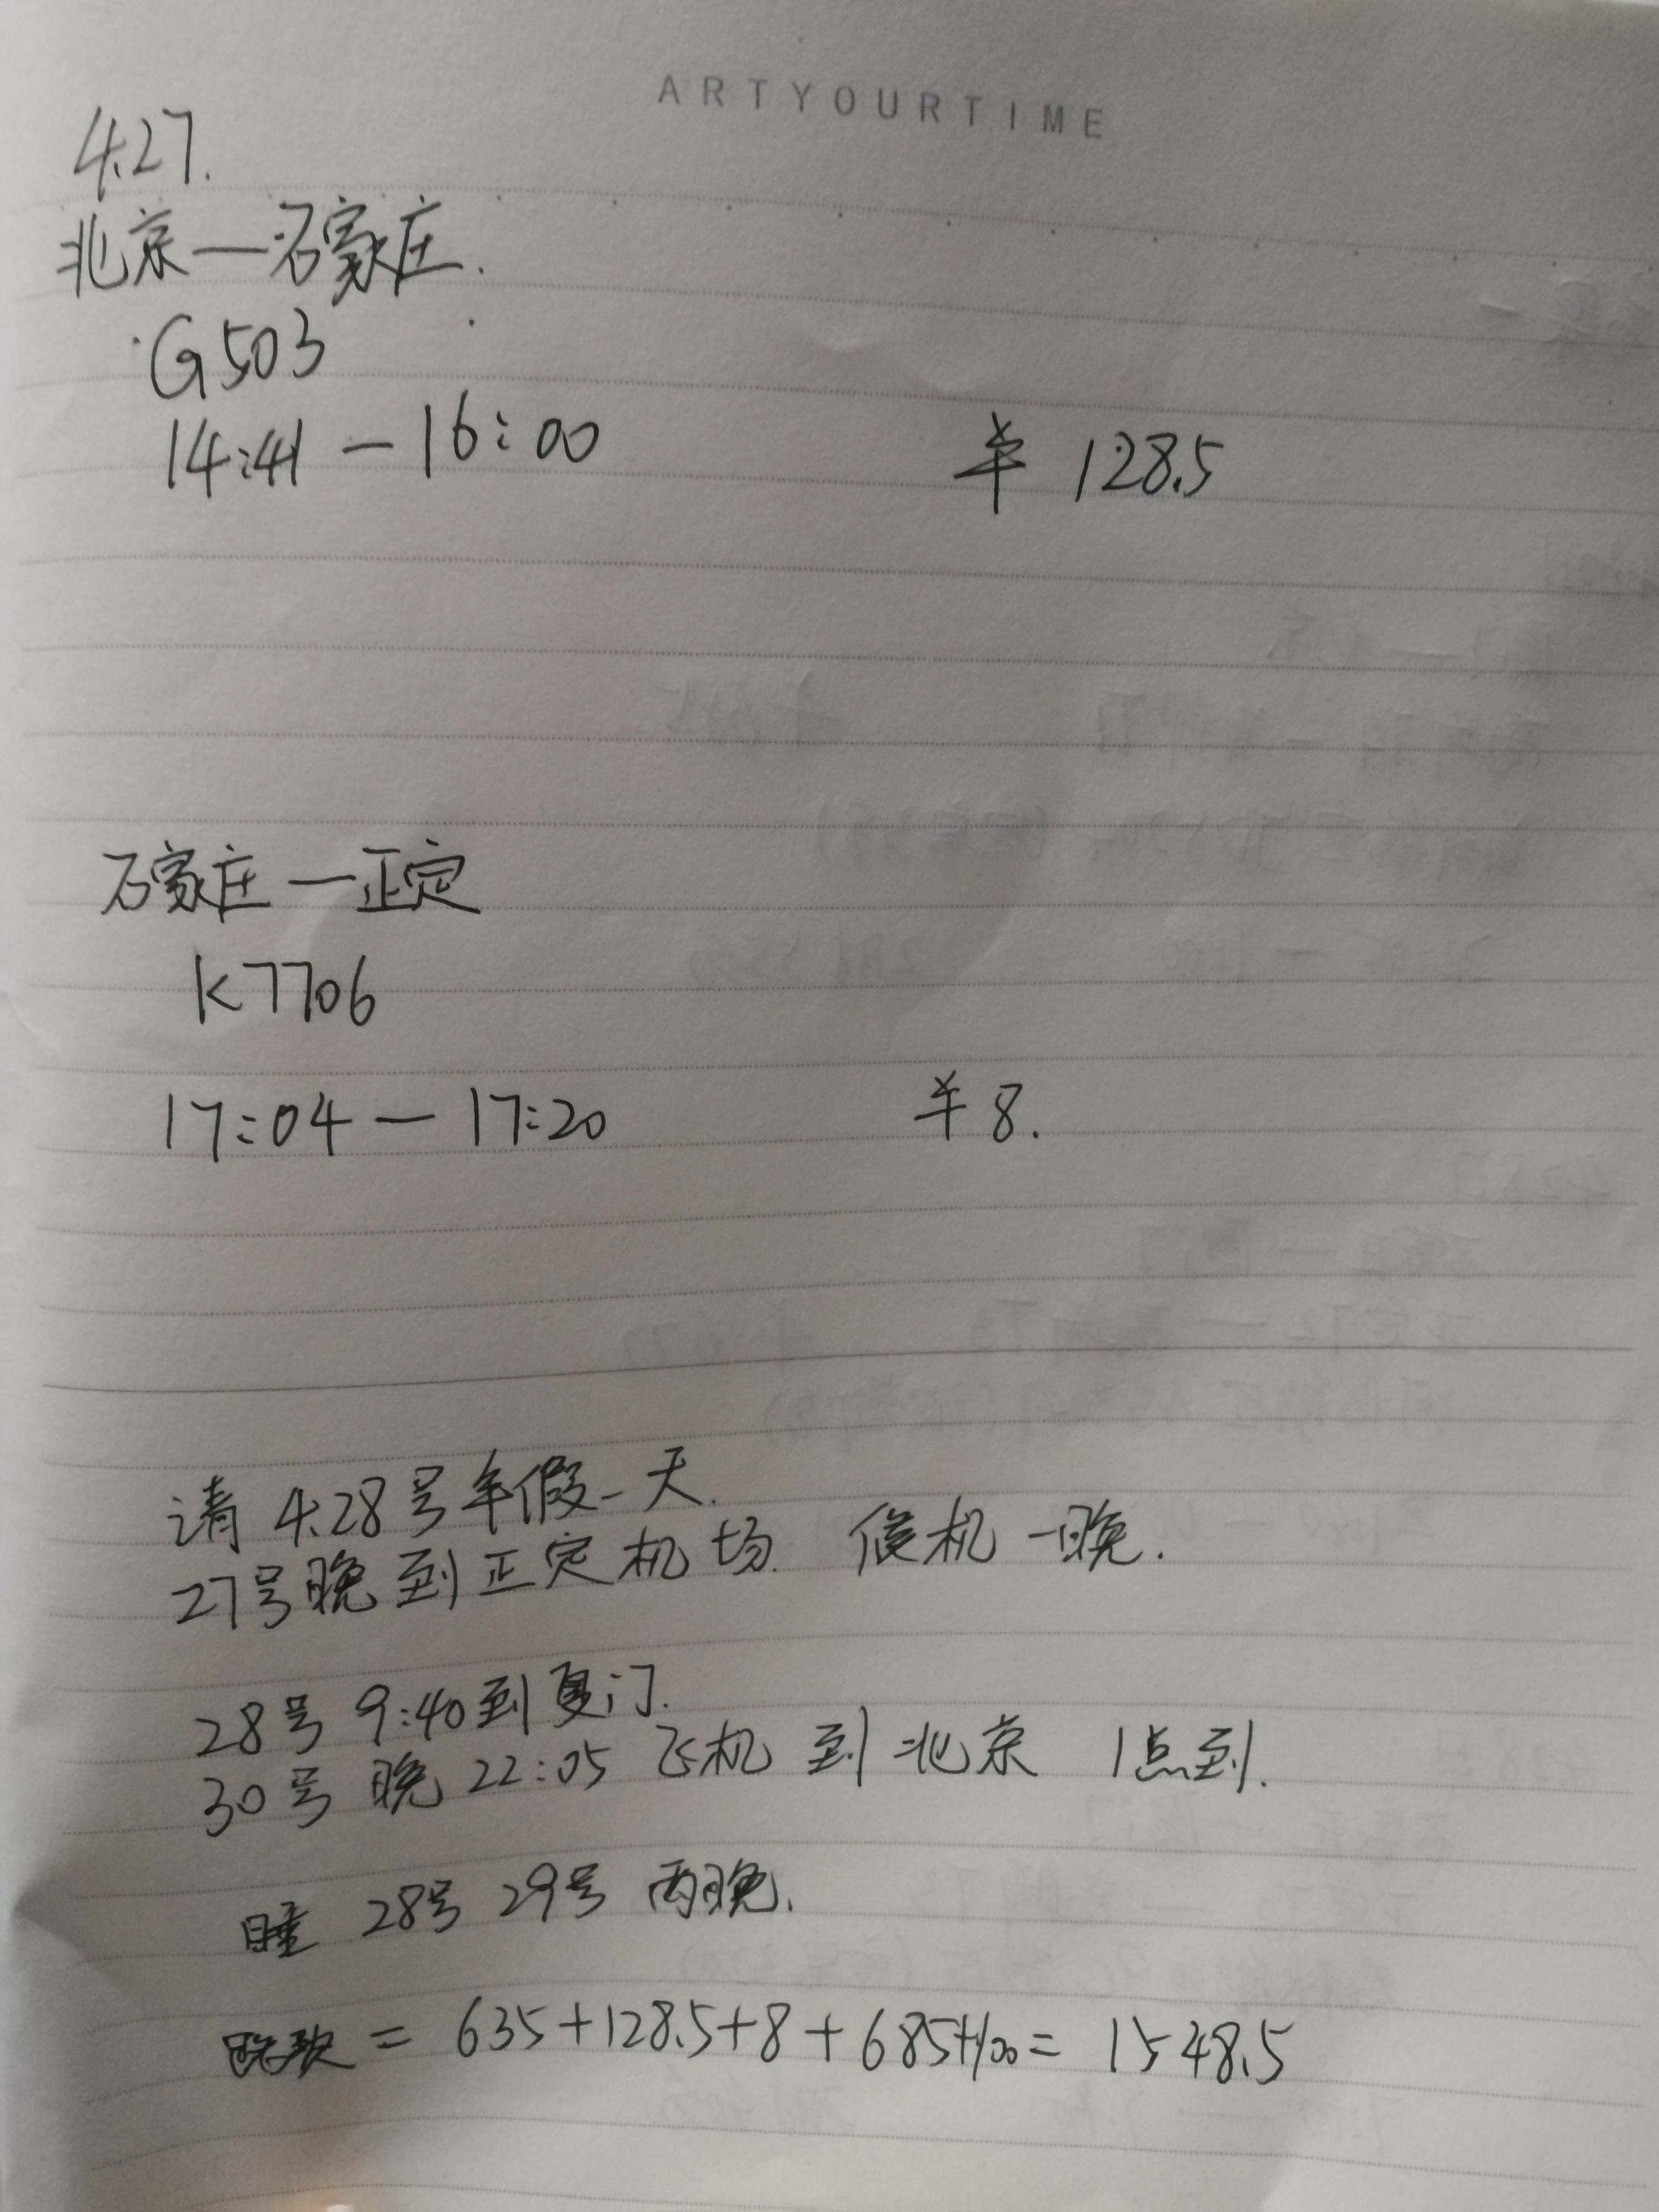 ARTYOURTIME
4.27.
北京—石家庄.
G503
14:41 — 16:00 ¥ 128.5
石家庄 — 正定
K7706
17:04 — 17:20 ¥ 8.
请 4.28号年假一天.
27号晚到正定机场. 候机一晚.
28号 9:40到厦门.
30号 晚 22:05 飞机 到 北京 1点到.
睡 28号 29号 两晚.
= 635+128.5+8+685+100= 1548.5